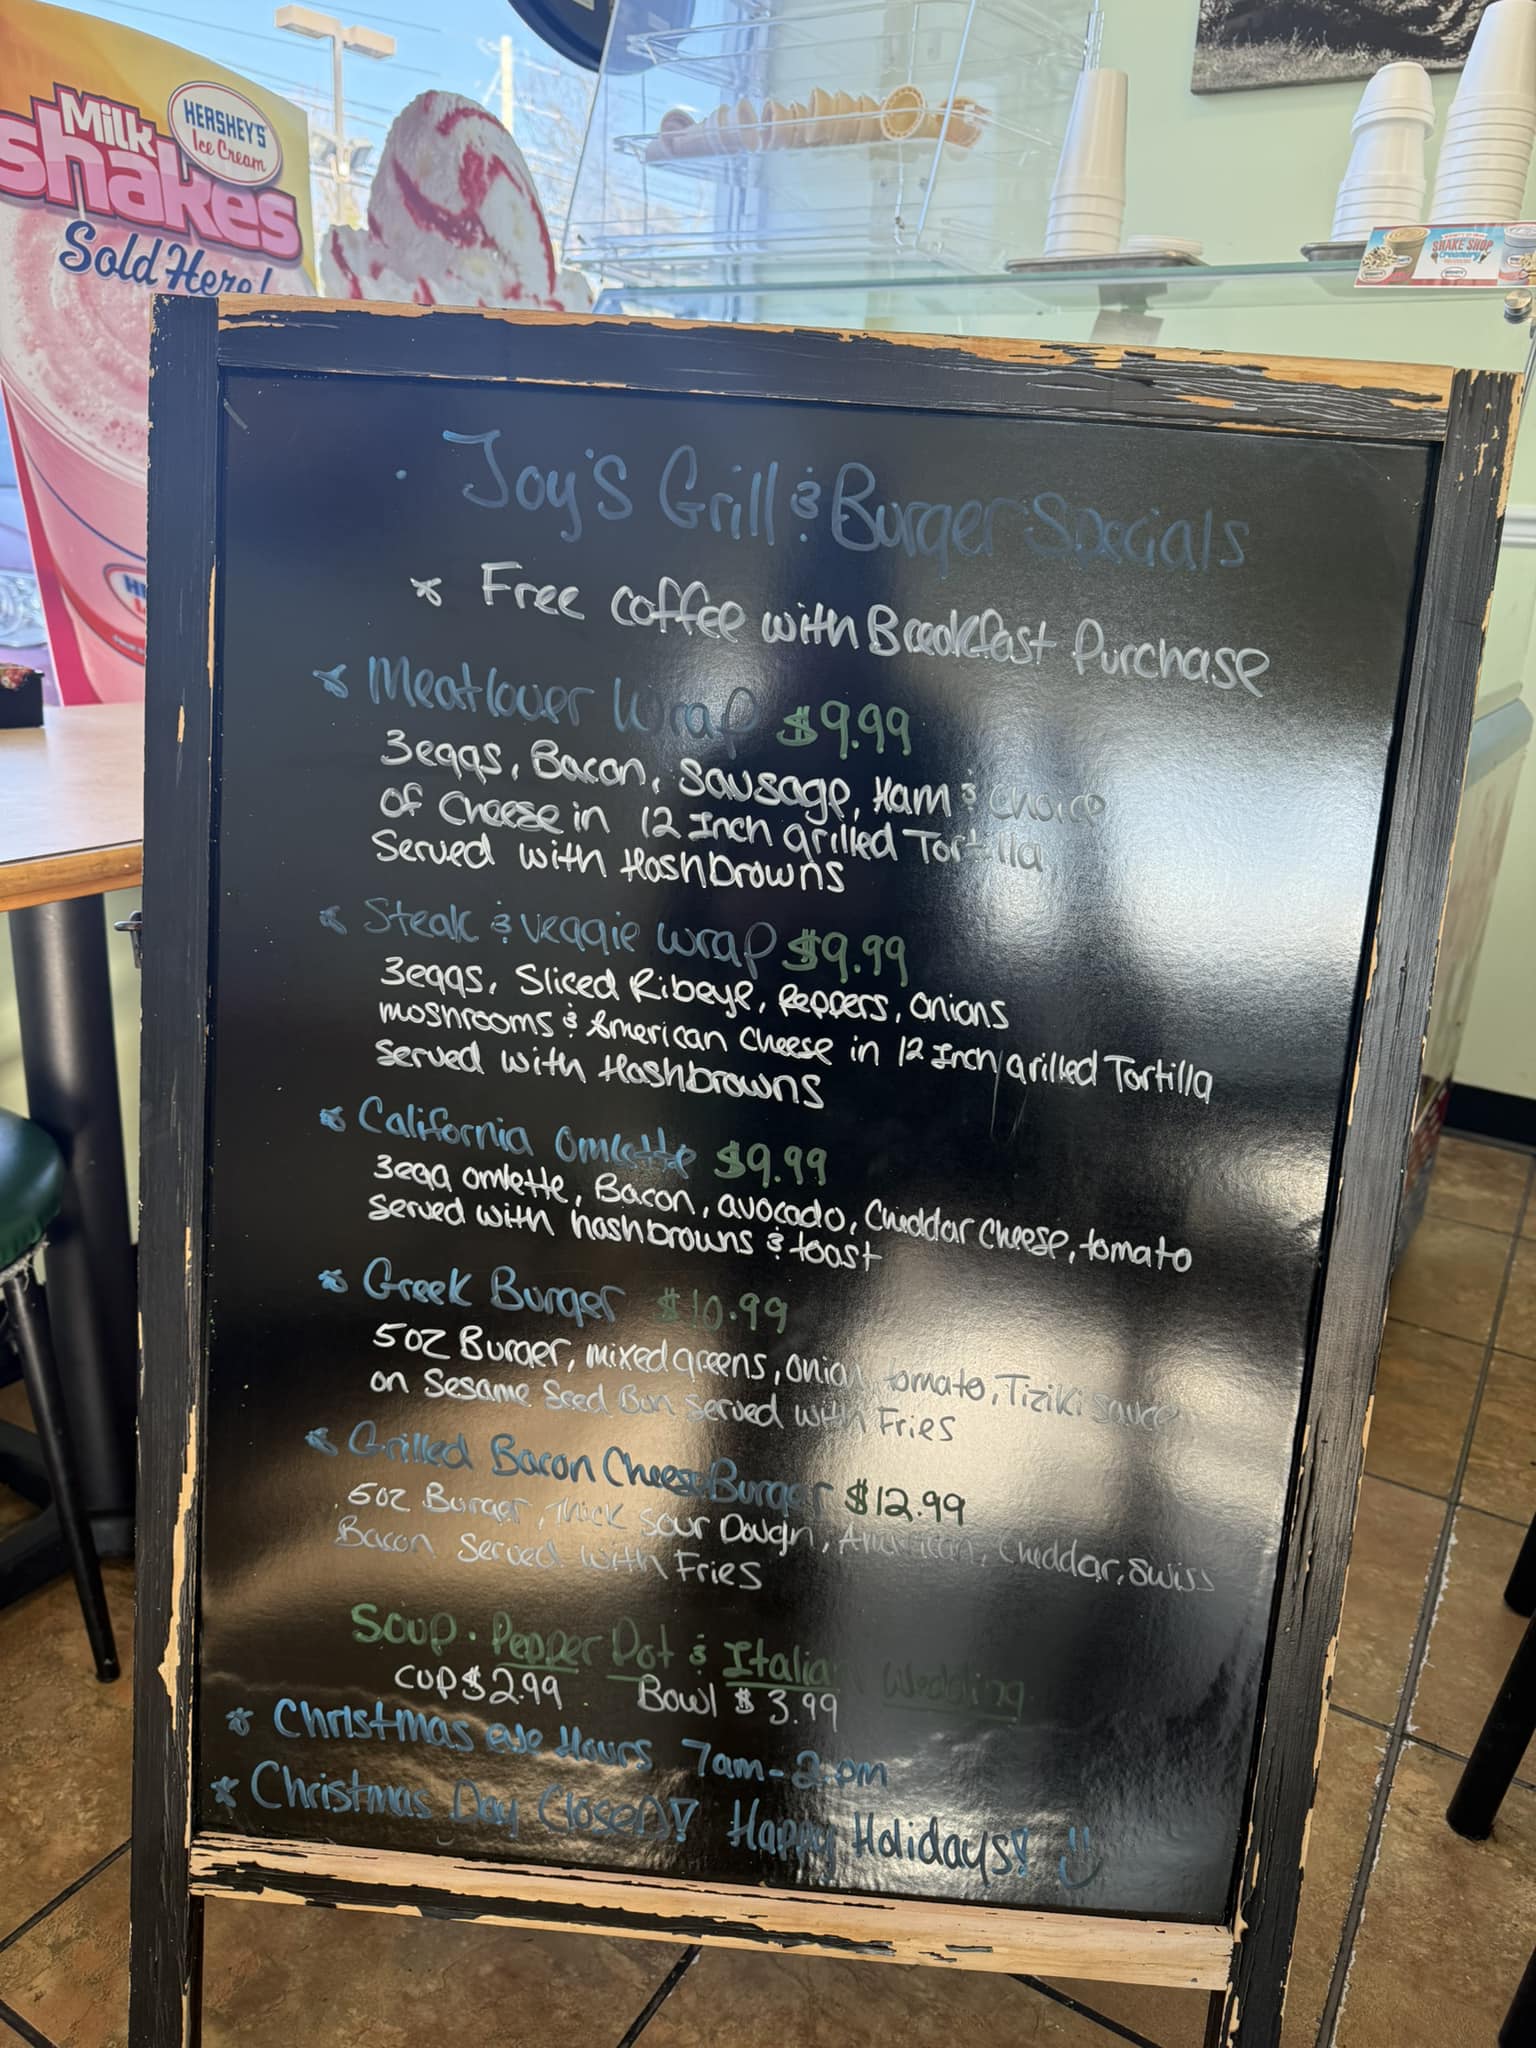 Milk
shakes
HERSHEY'S
Ice Cream
Sold Here!
SHAKE SHOP
Creamery
Joy's Grill & Burger Specials
* Free coffee with Breakfast Purchase
* Meatlover Wrap $9.99
3eggs, Bacon, Sausage, Ham & Choice
of Cheese in 12 Inch grilled Tortilla
Served with Hashbrowns
* Steak & Veggie Wrap $9.99
3eggs, Sliced Ribeye, Peppers, Onions
moshrooms & American Cheese in 12 Inch grilled Tortilla
Served with Hashbrowns
* California Omlette $9.99
3egg omlette, Bacon, avocado, Cheddar Cheese, tomato
Served with hashbrowns & toast
* Greek Burger $10.99
5oz Burger, mixed greens, Onion, tomato, Tiziki sauce
on Sesame Seed Bun served with Fries
* Grilled Bacon Cheese Burger $12.99
5oz Burger, Thick Sour Dough, American, Cheddar, Swiss
Bacon Served with Fries
Soup. Pepper Pot & Italian Wedding
Cup $2.99 Bowl $3.99
* Christmas eve Hours 7am-2pm
* Christmas Day Closed! Happy Holidays!